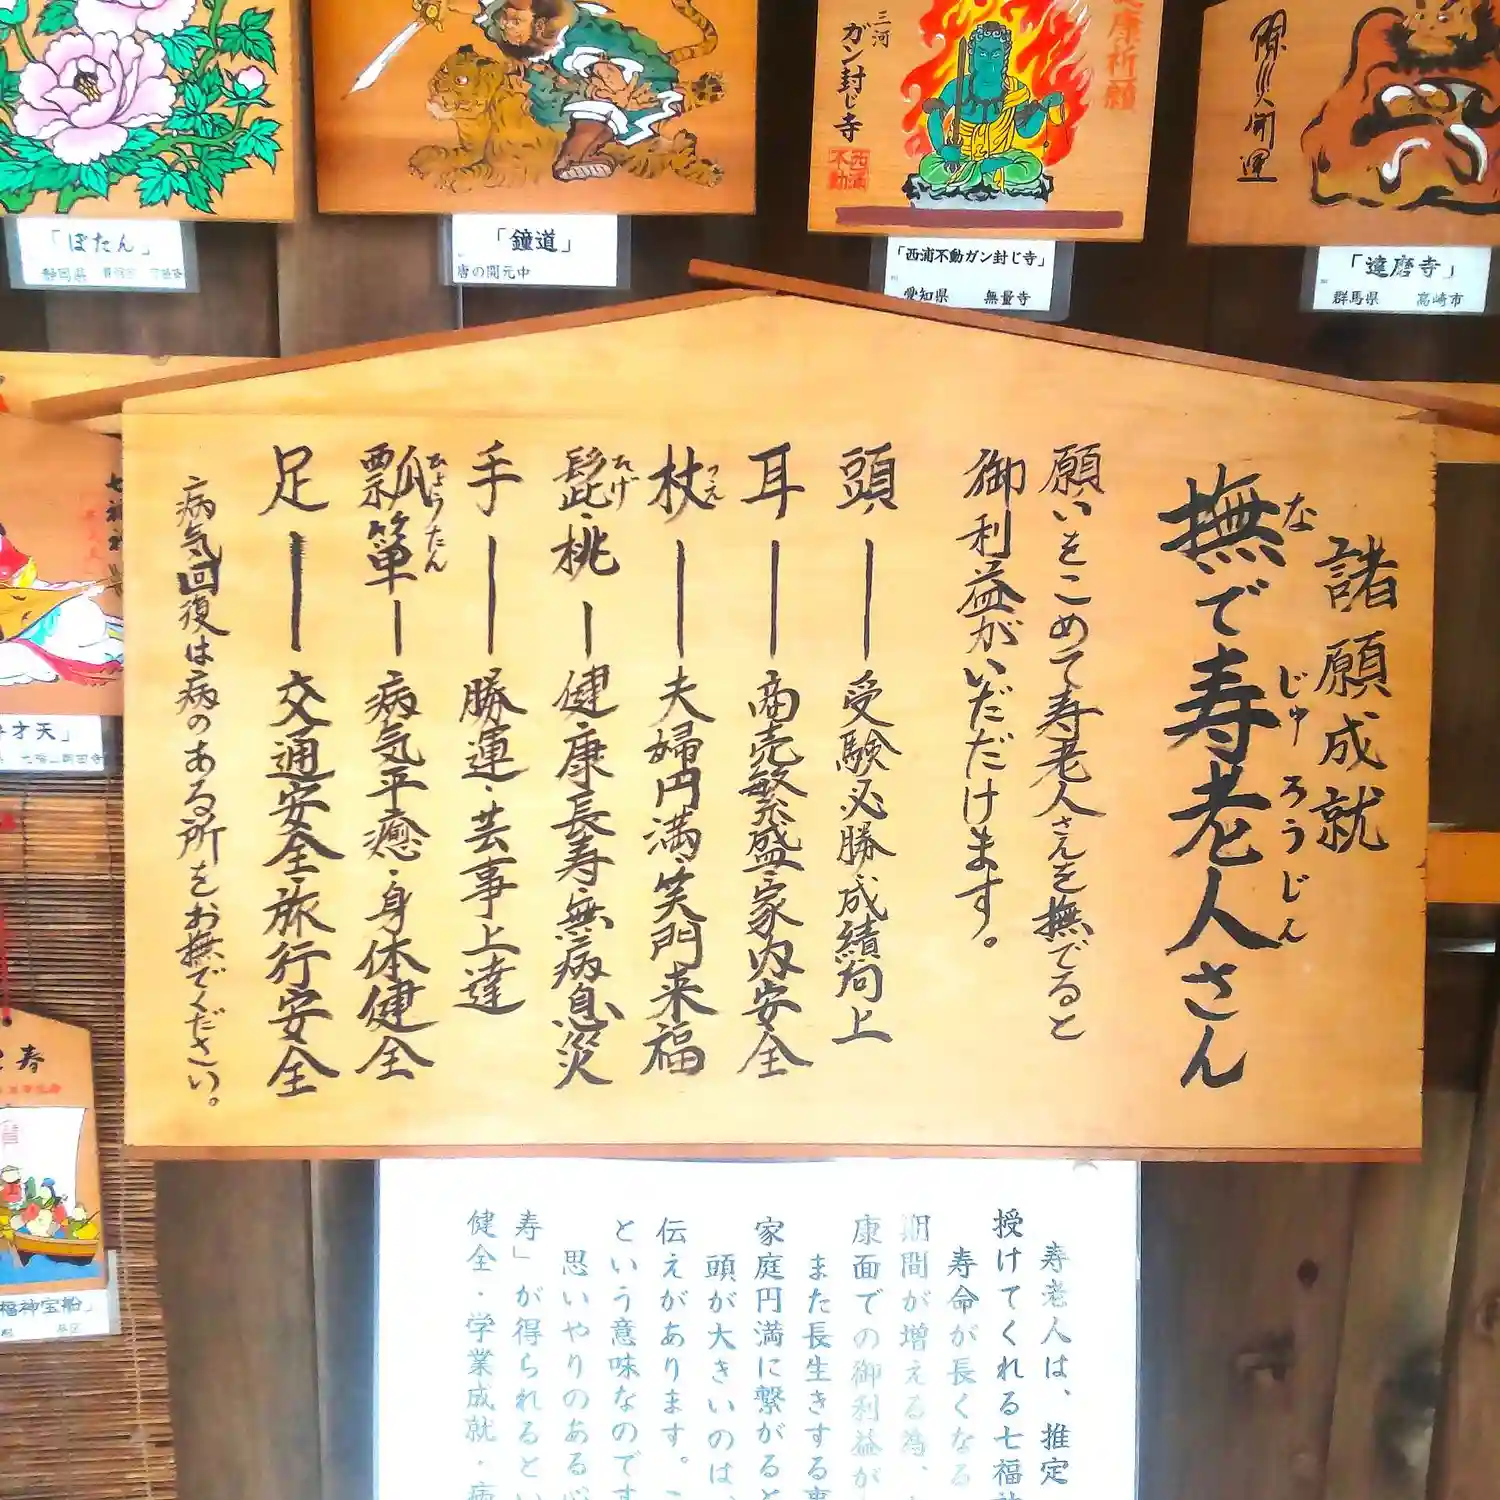 「ぼたん」
静岡県
「鐘道」
唐の開元中
三河
ガン封じ寺
西浦
不動
健康祈願
「西浦不動ガン封じ寺」
愛知県 無量寺
開運
「達磨寺」
群馬県 高崎市
諸願成就
撫で寿老人さん
な じゅ ろう じん
願いをこめて寿老人さんを撫でると
御利益がいただけます。
頭 ー 受験必勝 成績向上
耳 ー 商売繁盛・家内安全
杖 ー 夫婦円満・笑門来福
つえ
髭・桃 ー 健康長寿・無病息災
ひげ
手 ー 勝運・芸事上達
瓢箪 ー 病気平癒・身体健全
ひょうたん
足 ー 交通安全・旅行安全
病気回復は病のある所をお撫でください。
才天」
寿
福神宝船」
寿老人は、推定
授けてくれる七福
寿命が長くなる
期間が増える為、
康面での御利益が
また長生きする事
家庭円満に繋がると
頭が大きいのは、
伝えがあります。こ
という意味なのです
思いやりのある心
寿」が得られるとい
健全・学業成就・病